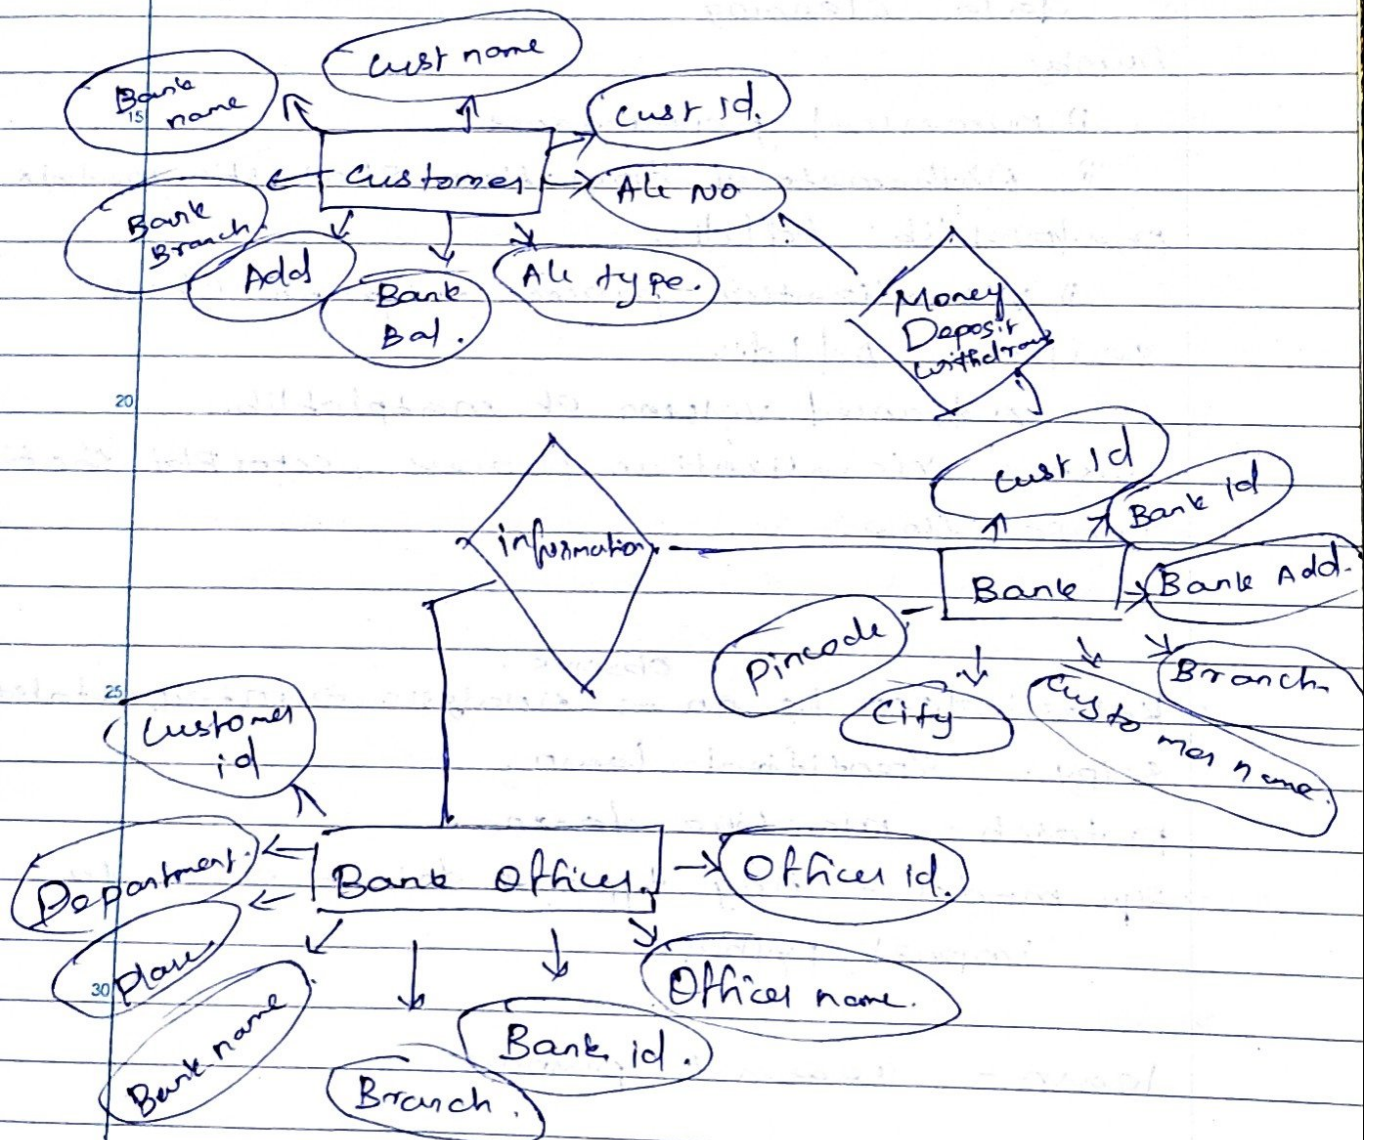 Cust name
Bank
name
Cust Id.
Customer
A/c No
Bank
Branch.
Add
Bank
Bal.
A/c type.
Money
Deposit
withdraw
15
20
Cust Id
Bank id
information
Bank
Bank Add.
Pincode
City
Customer name.
Branch.
25
Customer
id
Department.
Bank Officer.
Officer id.
Place
30
Bank name
Branch.
Bank id.
Officer name.